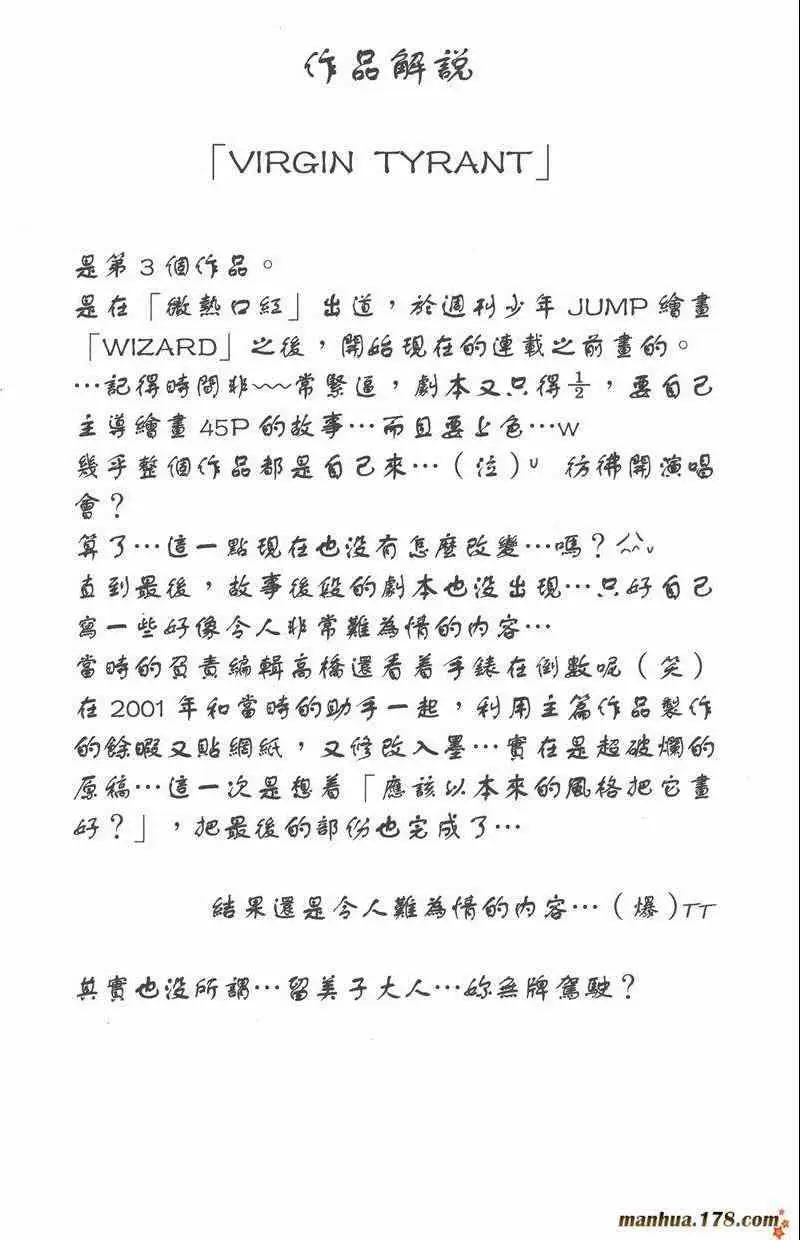 作品解說
「VIRGIN TYRANT」
是第3個作品。
是在「微熱口紅」出道，於週刊少年JUMP繪畫
「WIZARD」之後，開始現在的連載之前畫的。
…記得時間非〰常緊逼，劇本又只得½，要自己
主導繪畫45P的故事…而且要上色…w
幾乎整個作品都是自己來…（泣）υ 彷彿開演唱
會？
算了…這一點現在也沒有怎麼改變…嗎？^^υ
直到最後，故事後段的劇本也沒出現…只好自己
寫一些好像令人非常難為情的內容…
當時的負責編輯高橋還看着手錶在倒數呢（笑）
在2001年和當時的助手一起，利用主篇作品製作
的餘暇又貼網紙，又修改入墨…實在是超破爛的
原稿…這一次是想着「應該以本來的風格把它畫
好？」，把最後的部份也完成了…
結果還是令人難為情的內容…（爆）TT
其實也沒所謂…留美子大人…妳無牌駕駛？
manhua.178.com